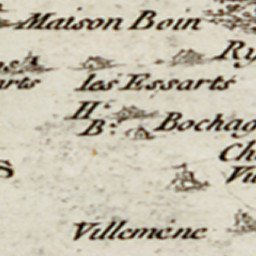 Maison Boin
Ry
arts les Essarts
H.
B. Bochag
Ch
S Vil
Villemene